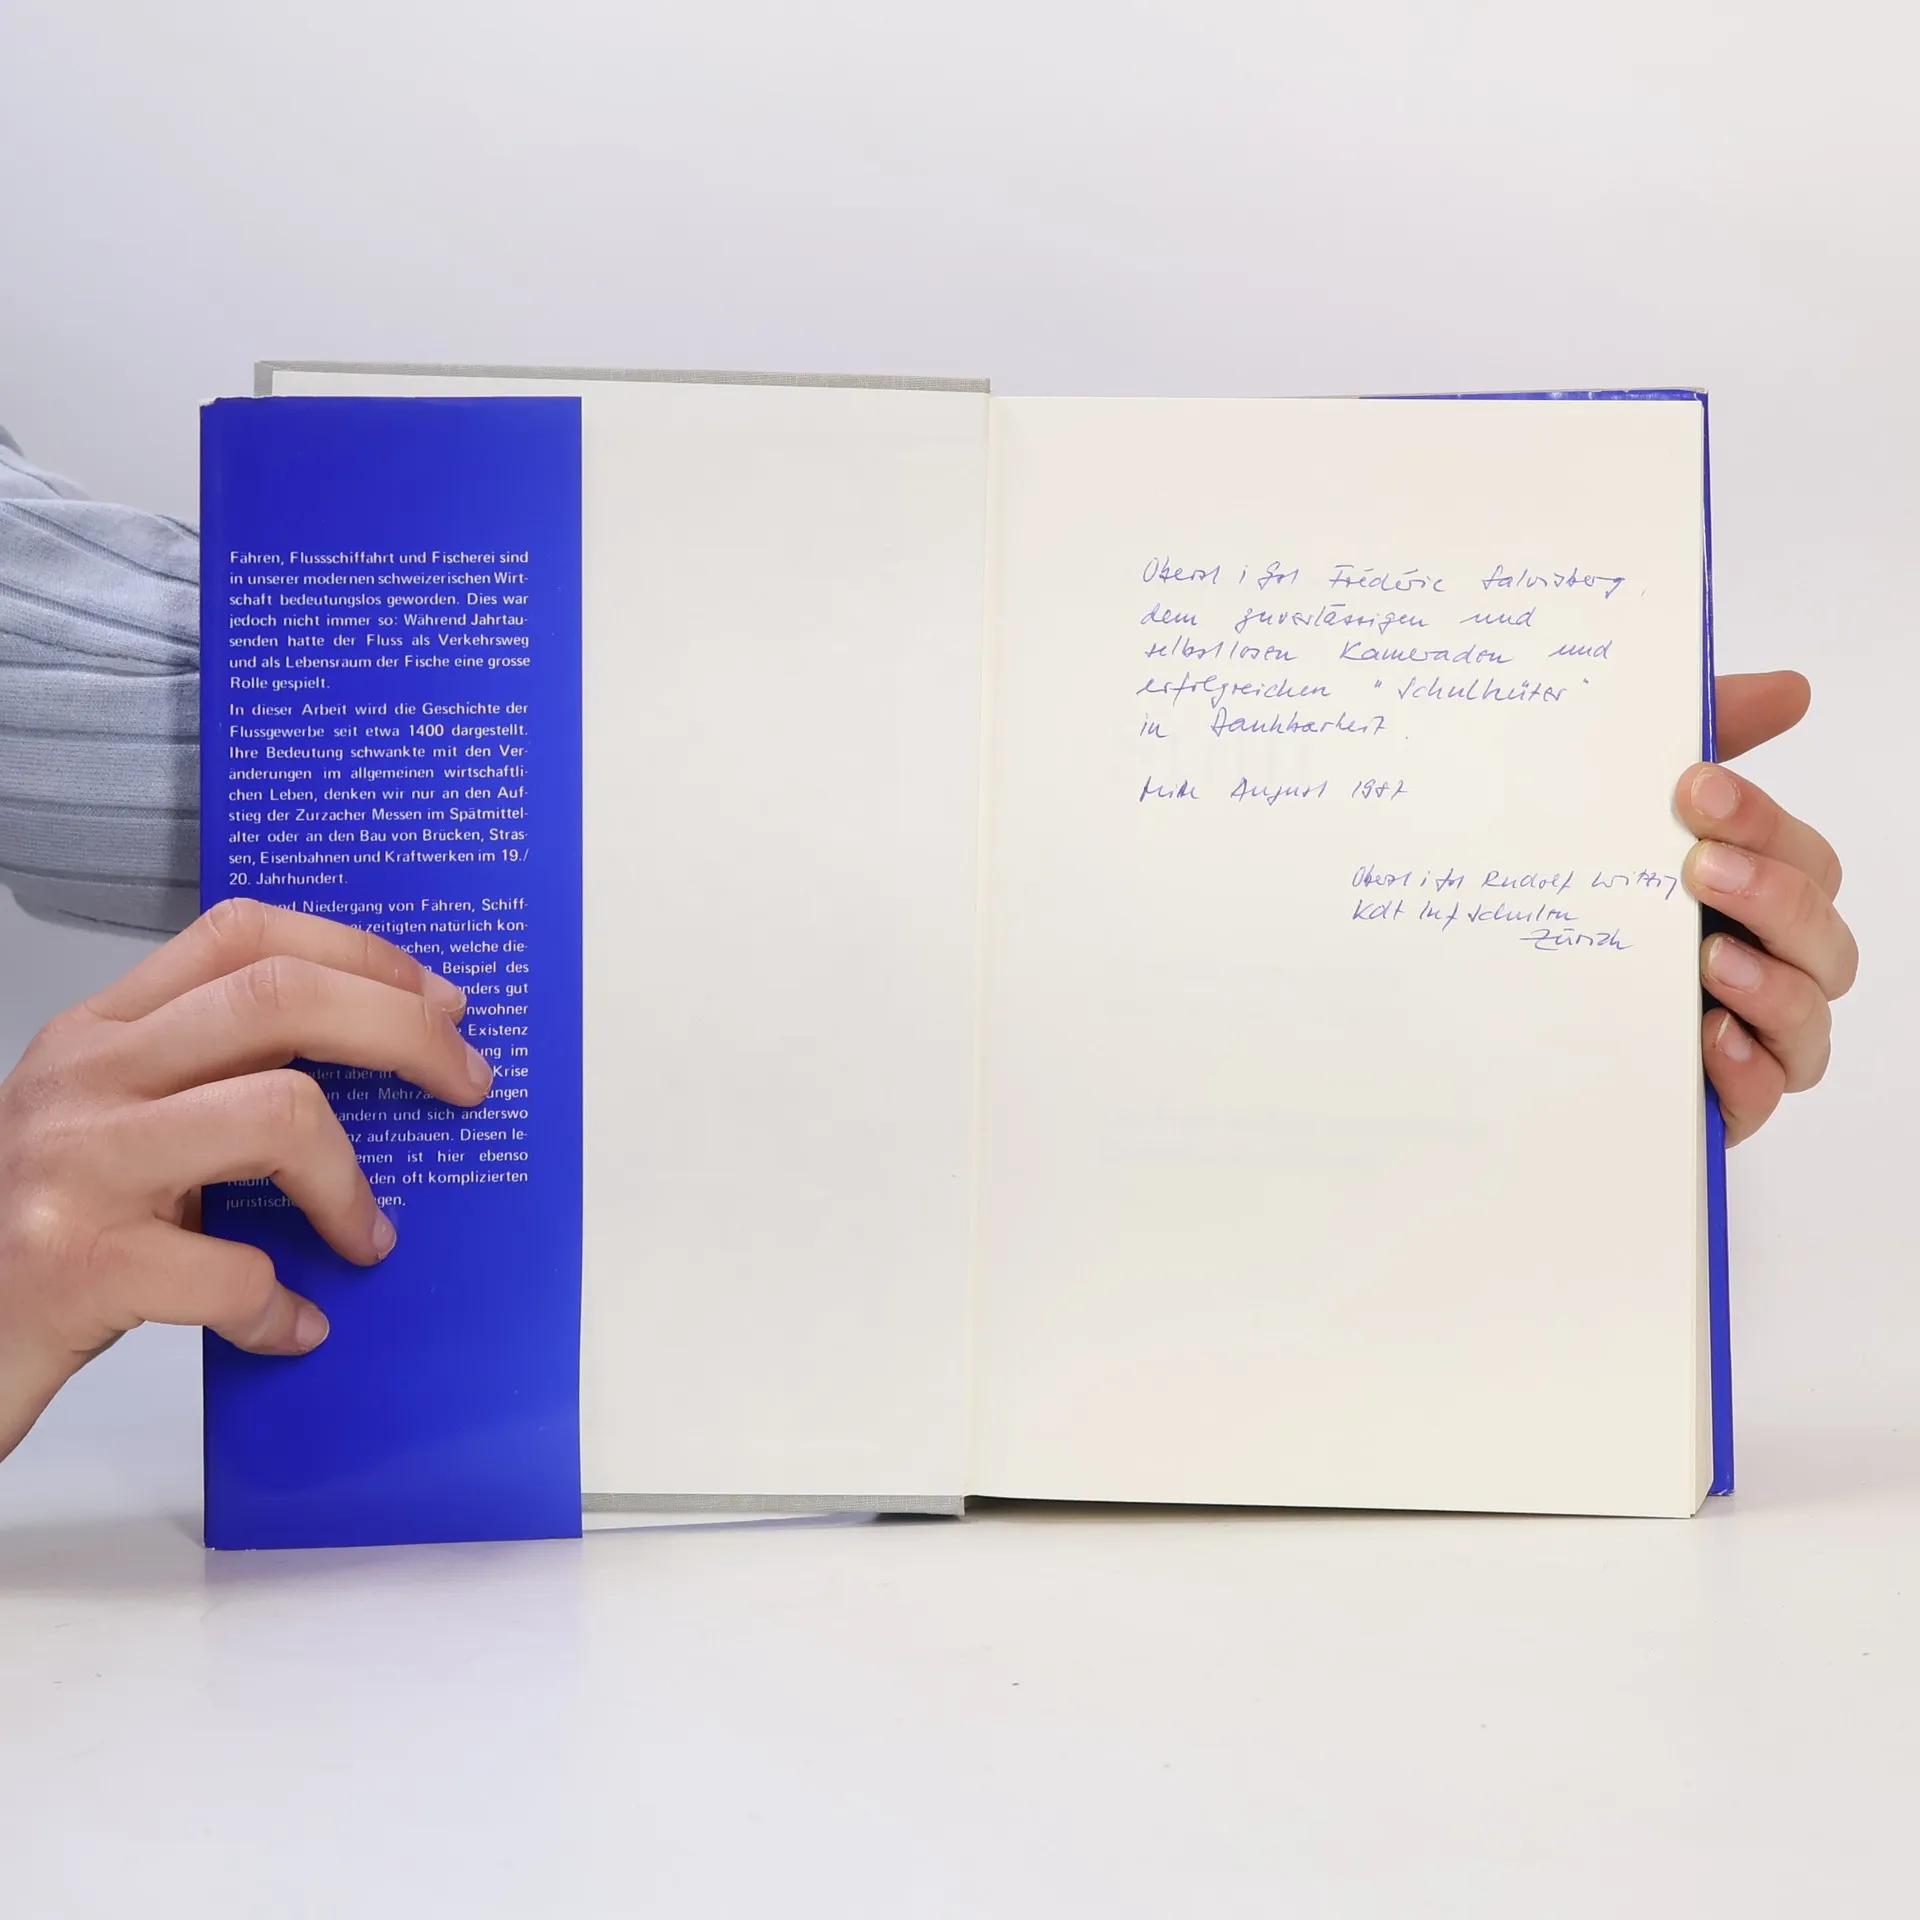 Fähren, Flussschiffahrt und Fischerei sind
in unserer modernen schweizerischen Wirt-
schaft bedeutungslos geworden. Dies war
jedoch nicht immer so: Während Jahrtau-
senden hatte der Fluss als Verkehrsweg
und als Lebensraum der Fische eine grosse
Rolle gespielt.
In dieser Arbeit wird die Geschichte der
Flussgewerbe seit etwa 1400 dargestellt.
Ihre Bedeutung schwankte mit den Ver-
änderungen im allgemeinen wirtschaftli-
chen Leben, denken wir nur an den Auf-
stieg der Zurzacher Messen im Spätmittel-
alter oder an den Bau von Brücken, Stras-
sen, Eisenbahnen und Kraftwerken im 19./
20. Jahrhundert.
Niedergang von Fähren, Schiff-
zeitigten natürlich kon-
welche die-
Beispiel des
gut
Existenz
im
Krise
der
und sich anderswo
aufzubauen. Diesen le-
ist hier ebenso
den oft komplizierten
Oberst i Gst Frédéric Salvisberg,
dem zuverlässigen und
selbstlosen Kameraden und
erfolgreichen "Schulhüter"
in Dankbarkeit.
Mitte August 1987
Oberst i Gst Rudolf Witzig
Kdt Inf Schulen
Zürich